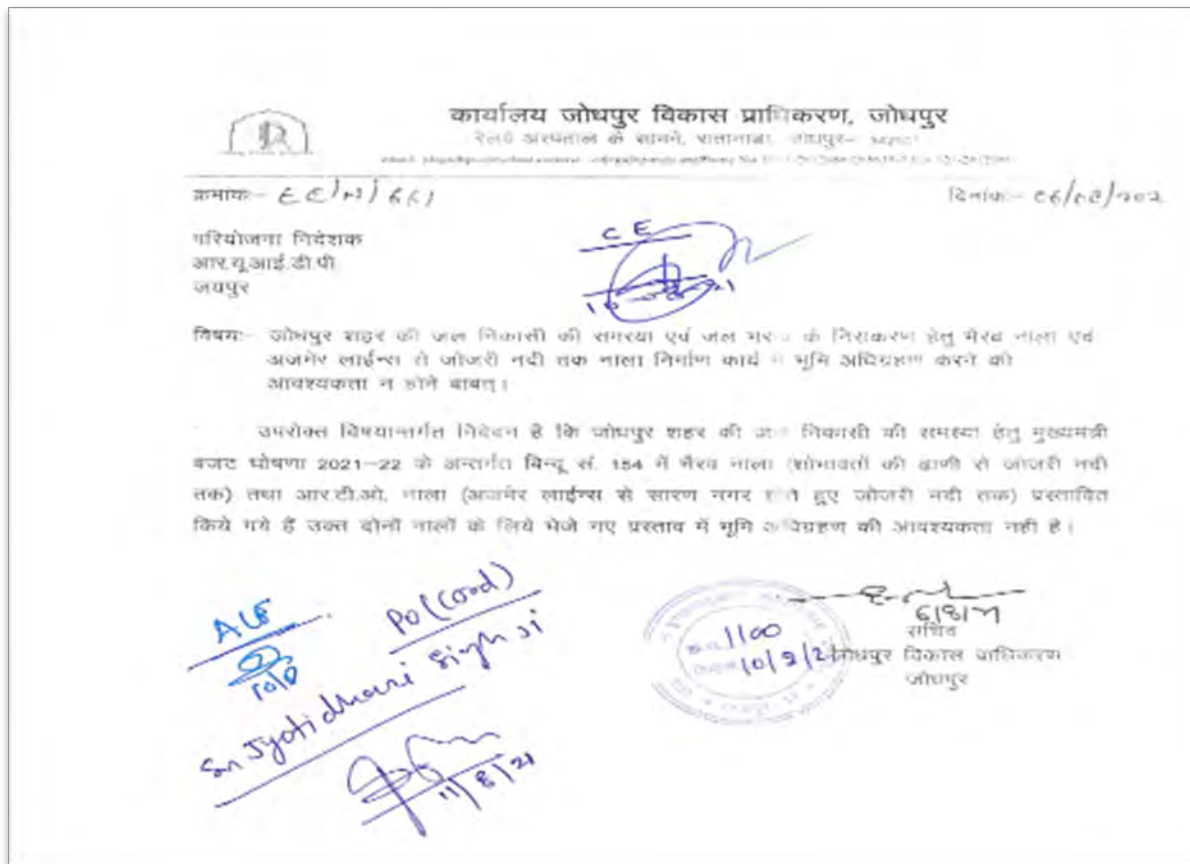 कार्यालय जोधपुर विकास प्राधिकरण, जोधपुर
रेलवे अस्पताल के सामने, रातानाडा, जोधपुर–
क्रमांकः–
दिनांकः–
परियोजना निदेशक
आर.यू.आई.डी.पी.
जयपुर
CE
विषयः– जोधपुर शहर की जल निकासी की समस्या एवं जल भराव के निराकरण हेतु भैरव नाला एवं
अजमेर लाईन्स से जोजरी नदी तक नाला निर्माण कार्य में भूमि अधिग्रहण करने की
आवश्यकता न होने बाबत्।
उपरोक्त विषयान्तर्गत निवेदन है कि जोधपुर शहर की जल निकासी की समस्या हेतु मुख्यमंत्री
बजट घोषणा 2021–22 के अन्तर्गत बिन्दू सं. 154 में भैरव नाला (शोभावतों की ढाणी से जोजरी नदी
तक) तथा आर.टी.ओ. नाला (अजमेर लाईन्स से सारण नगर होते हुए जोजरी नदी तक) प्रस्तावित
किये गये हैं उक्त दोनों नालों के लिये भेजे गए प्रस्ताव में भूमि अधिग्रहण की आवश्यकता नही है।
PO (Cord)
Sr. Jyotidhari Singh Ji
11/8/21
1100
सचिव
जोधपुर विकास प्राधिकरण
जोधपुर